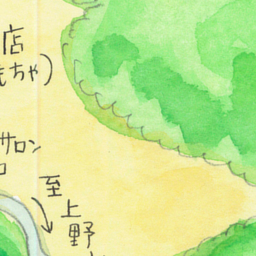 店
もちゃ)
サロン
至上野